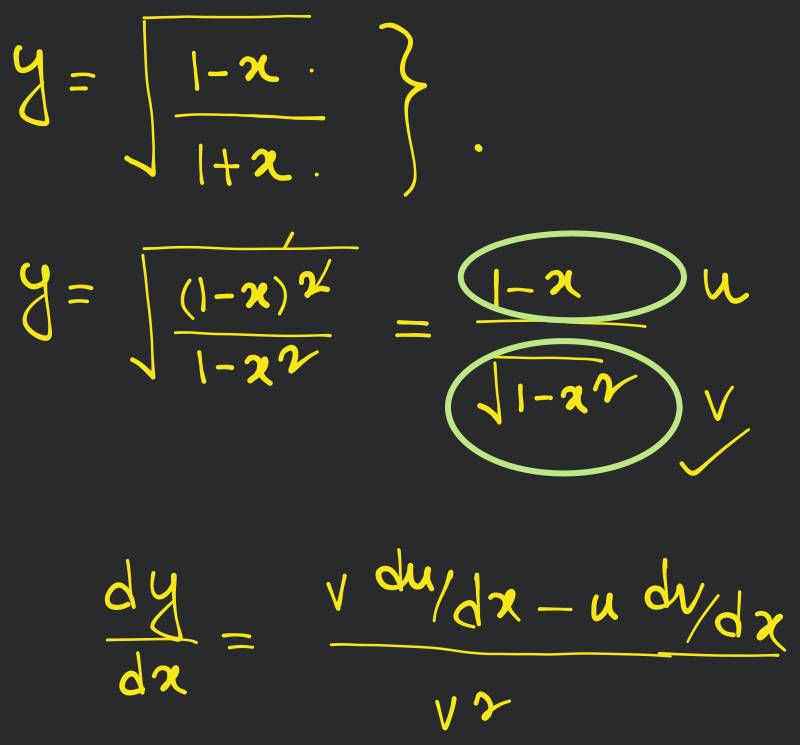 y = √((1-x)/(1+x)) } .
y = √((1-x)²/(1-x²)) = (1-x)/√(1-x²) u v ✓
dy/dx = (v du/dx - u dv/dx)/v²